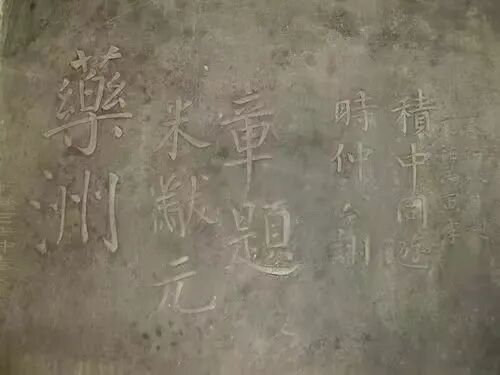 藥洲
米黻元
章題
時仲公詡
積中同遊